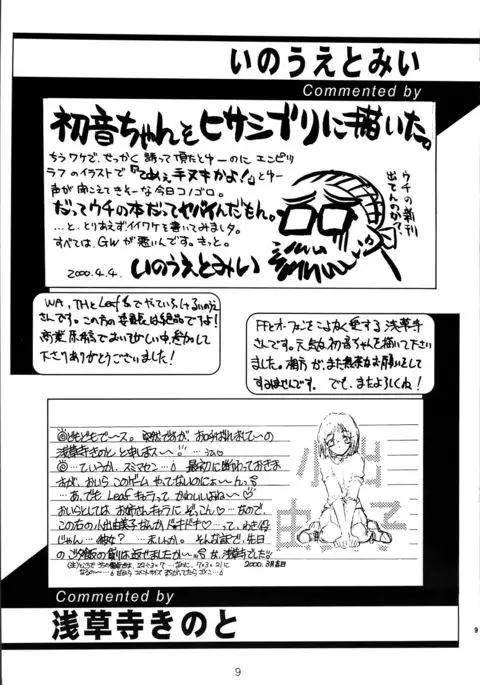 いのうえとみい
Commented by
初音ちゃんをヒサシブリに描いた。
ちうワケで、せっかく誘って頂たとゆーのに エンピツ
ラフのイラストで「てめぇ手ヌキかよ!」とゆー
声が聞こえてきそーな今日コノゴロ。
だってウチの本だってヤバイんだもん。
…と、とりあえずイイワケを書いてみましタ。
すべては、GWが悪いんです。きっと。
2000.4.4. いのうえとみい
ウチの新刊
出てんのか?
WA、THとLeaf系でやっていらっしゃるいのうえ
さんです。この方の委員長は絶品ですよ!
商業原稿でおいそがしい中、参加して
下さりありがとうございました!
FFとオーフェンをこよなく愛する浅草寺
さんです。元気な初音ちゃんを描いて下さい
ました。相方が、また無茶なお願いをして
すみませんです。でも、またよろしくね!
どもどもでース。突然ですが、およばれしまして〜の
浅草寺きのと と申しまス〜
…ていうか、スミマセン… 最初に断わっておきま
すが、おいら このゲーム やってないのにょ〜〜んっ
…あ、でも Leafキャラって かわいいよね〜
おいらとしては お姉さんキャラに ぞっこん♡…なので、
この右の小出由美子なんか ドキドキ♡…って、
じゃん…
2000. 3月吉日
小出
由美子
Commented by
浅草寺きのと
9
9